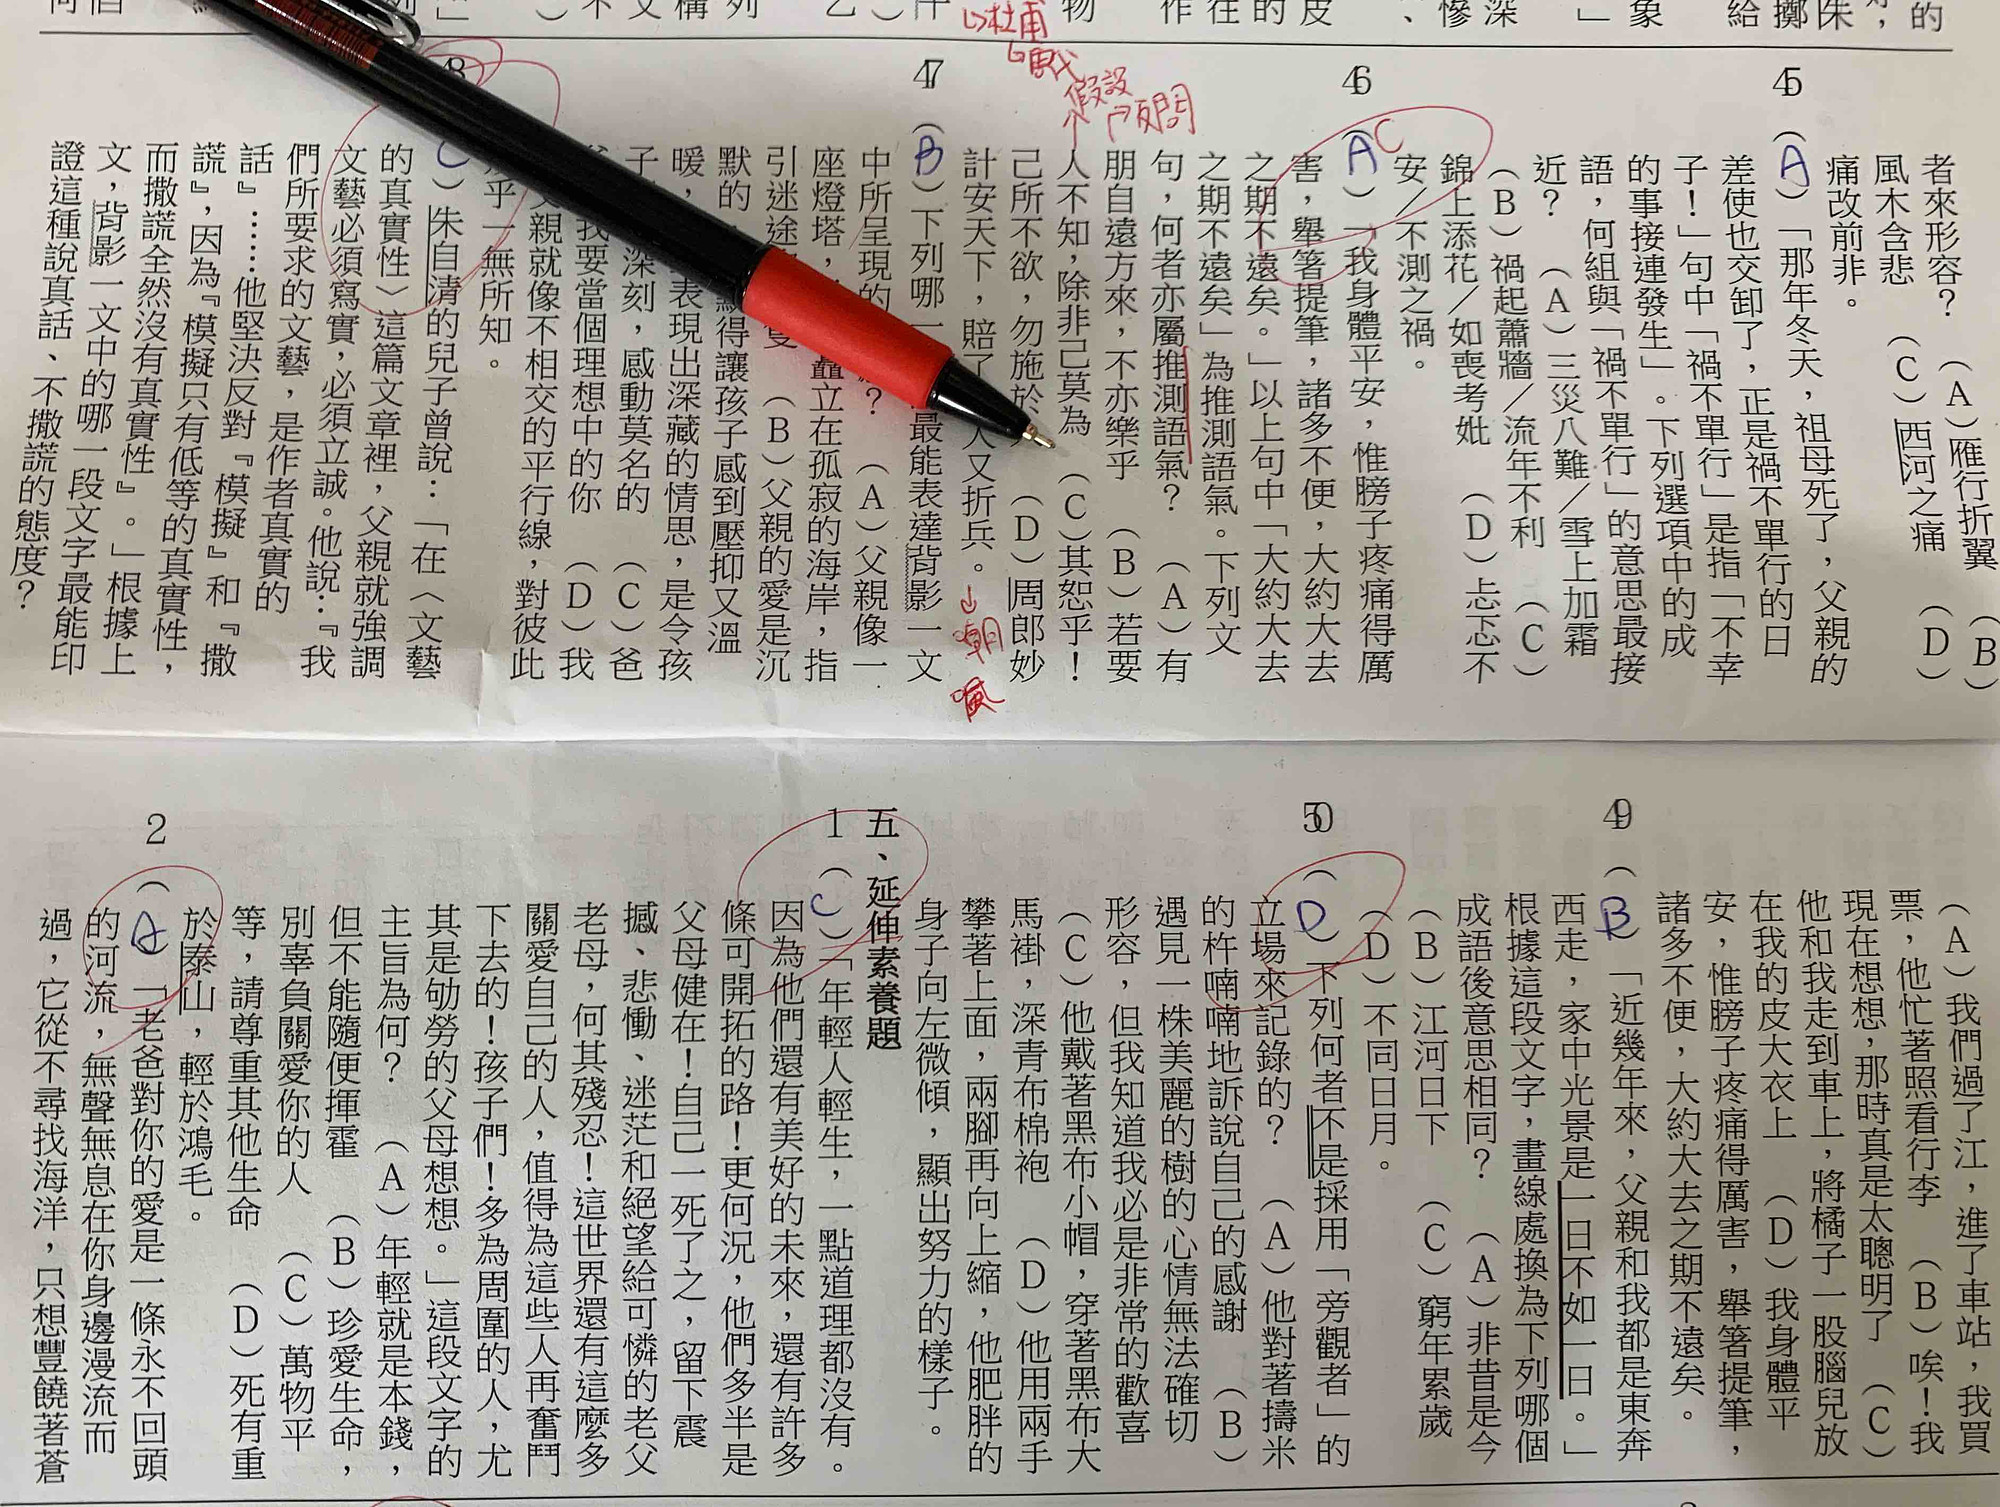 者來形容？　（A）雁行折翼　（B）
風木含悲　（C）西河之痛　（D）
痛改前非。
45（A）「那年冬天，祖母死了，父親的
差使也交卸了，正是禍不單行的日
子！」句中「禍不單行」是指「不幸
的事接連發生」。下列選項中的成
語，何組與「禍不單行」的意思最接
近？　（A）三災八難／雪上加霜
（B）禍起蕭牆／流年不利　（C）
錦上添花／如喪考妣　（D）忐忑不
安／不測之禍。
46（A）「我身體平安，惟膀子疼痛得厲
C
害，舉箸提筆，諸多不便，大約大去
之期不遠矣。」以上句中「大約大去
之期不遠矣」為推測語氣。下列文
句，何者亦屬推測語氣？　（A）有
朋自遠方來，不亦樂乎　（B）若要
人不知，除非己莫為　（C）其恕乎！
己所不欲，勿施於　（D）周郎妙
計安天下，賠了　人又折兵。
假設
反問
杜甫
嘲
諷
47（B）下列哪一　最能表達背影一文
中所呈現的　？　（A）父親像一
座燈塔，　矗立在孤寂的海岸，指
引迷途　（B）父親的愛是沉
默的　顯得讓孩子感到壓抑又溫
暖，　表現出深藏的情思，是令孩
子　深刻，感動莫名的　（C）爸
我要當個理想中的你　（D）我
父親就像不相交的平行線，對彼此
乎一無所知。
48（C）朱自清的兒子曾說：「在〈文藝
的真實性〉這篇文章裡，父親就強調
文藝必須寫實，必須立誠。他說：『我
們所要求的文藝，是作者真實的
話』……他堅決反對『模擬』和『撒
謊』，因為『模擬只有低等的真實性，
而撒謊全然沒有真實性』。」根據上
文，背影一文中的哪一段文字最能印
證這種說真話、不撒謊的態度？
（A）我們過了江，進了車站，我買
票，他忙著照看行李　（B）唉！我
現在想想，那時真是太聰明了　（C）
他和我走到車上，將橘子一股腦兒放
在我的皮大衣上　（D）我身體平
安，惟膀子疼痛得厲害，舉箸提筆，
諸多不便，大約大去之期不遠矣。
49（B）「近幾年來，父親和我都是東奔
西走，家中光景是一日不如一日。」
根據這段文字，畫線處換為下列哪個
成語後意思相同？　（A）非昔是今
（B）江河日下　（C）窮年累歲
（D）不同日月。
50（D）下列何者不是採用「旁觀者」的
立場來記錄的？　（A）他對著擣米
的杵喃喃地訴說自己的感謝　（B）
遇見一株美麗的樹的心情無法確切
形容，但我知道我必是非常的歡喜
（C）他戴著黑布小帽，穿著黑布大
馬褂，深青布棉袍　（D）他用兩手
攀著上面，兩腳再向上縮，他肥胖的
身子向左微傾，顯出努力的樣子。
五、延伸素養題
1（C）「年輕人輕生，一點道理都沒有。
因為他們還有美好的未來，還有許多
條可開拓的路！更何況，他們多半是
父母健在！自己一死了之，留下震
撼、悲慟、迷茫和絕望給可憐的老父
老母，何其殘忍！這世界還有這麼多
關愛自己的人，值得為這些人再奮鬥
下去的！孩子們！多為周圍的人，尤
其是劬勞的父母想想。」這段文字的
主旨為何？　（A）年輕就是本錢，
但不能隨便揮霍　（B）珍愛生命，
別辜負關愛你的人　（C）萬物平
等，請尊重其他生命　（D）死有重
於泰山，輕於鴻毛。
2（A）「老爸對你的愛是一條永不回頭
的河流，無聲無息在你身邊漫流而
過，它從不尋找海洋，只想豐饒著蒼